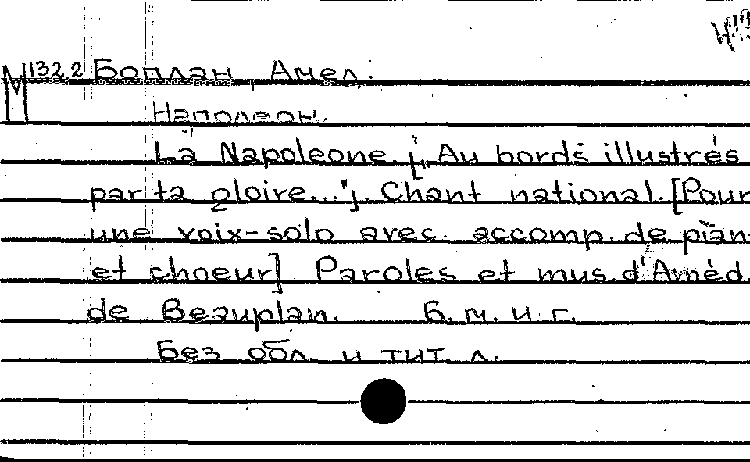 М 132 2 Боплан, Амед.
Наполеон.
La Napoleone ["Au bords illustrés
par ta gloire..."]. Chant national. [Pour
une voix-solo avec accomp. de pian
et choeur] Paroles et mus. d'Améd.
de Beauplan. Б. м. и г.
Без обл. и тит. л.